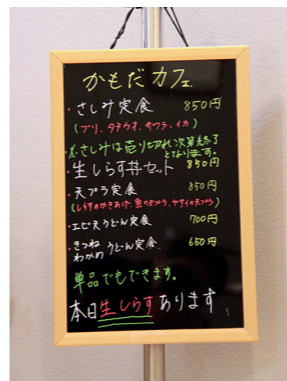 かもだカフェ
・さしみ定食 850円
(ブリ、タチウオ、サワラ、イカ)
さしみは売り切れ次第終了
となります。
・生しらす丼セット 850円
天プラ定食 850円
(しらすのかきあげ、魚の天プラ、ヤサイの天プラ)
・エビ天うどん定食 700円
・きつね
わかめ うどん定食 650円
単品でもできます。
本日生しらすあります